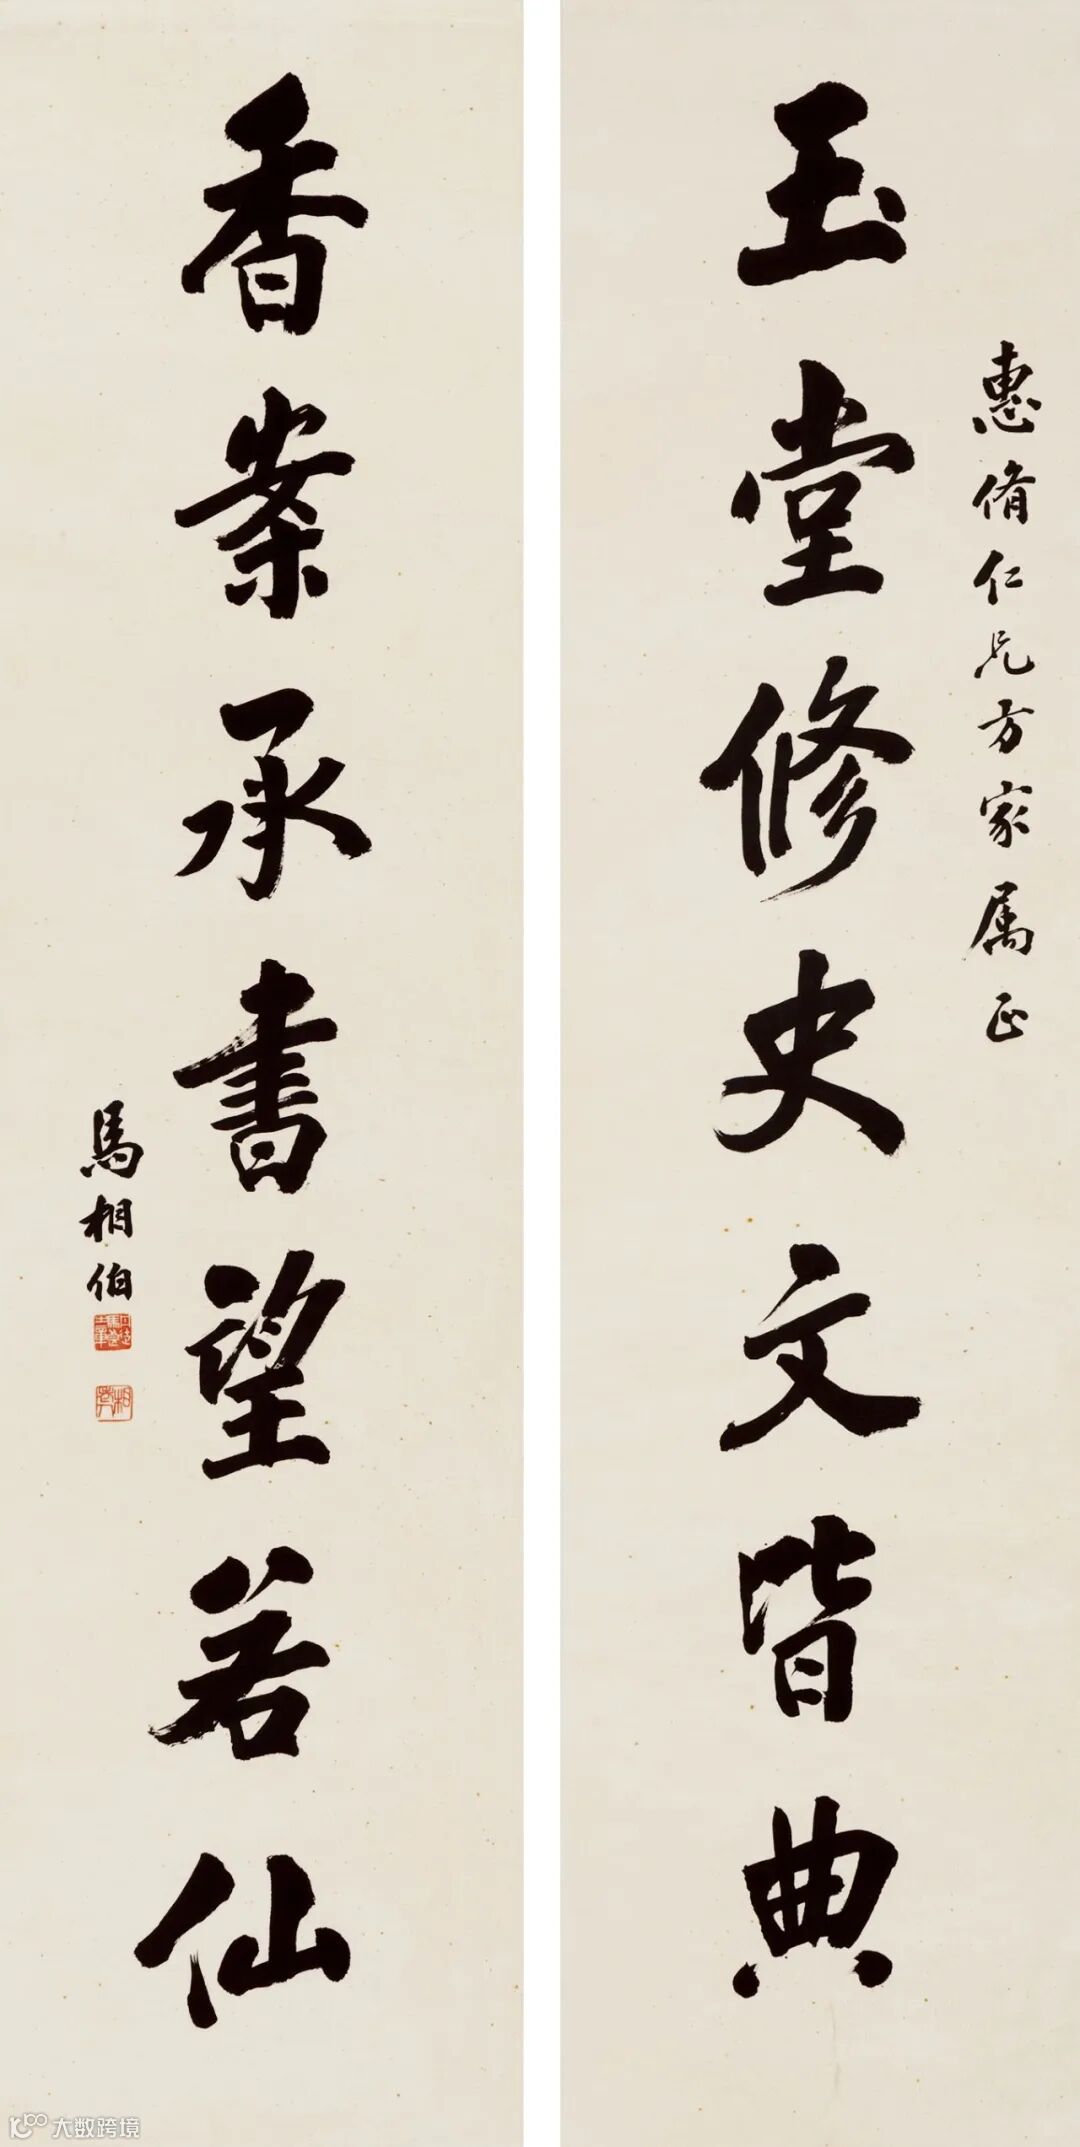 惠脩仁兄方家属正
玉堂修史文皆典
香案承书望若仙
馬相伯
大数跨境